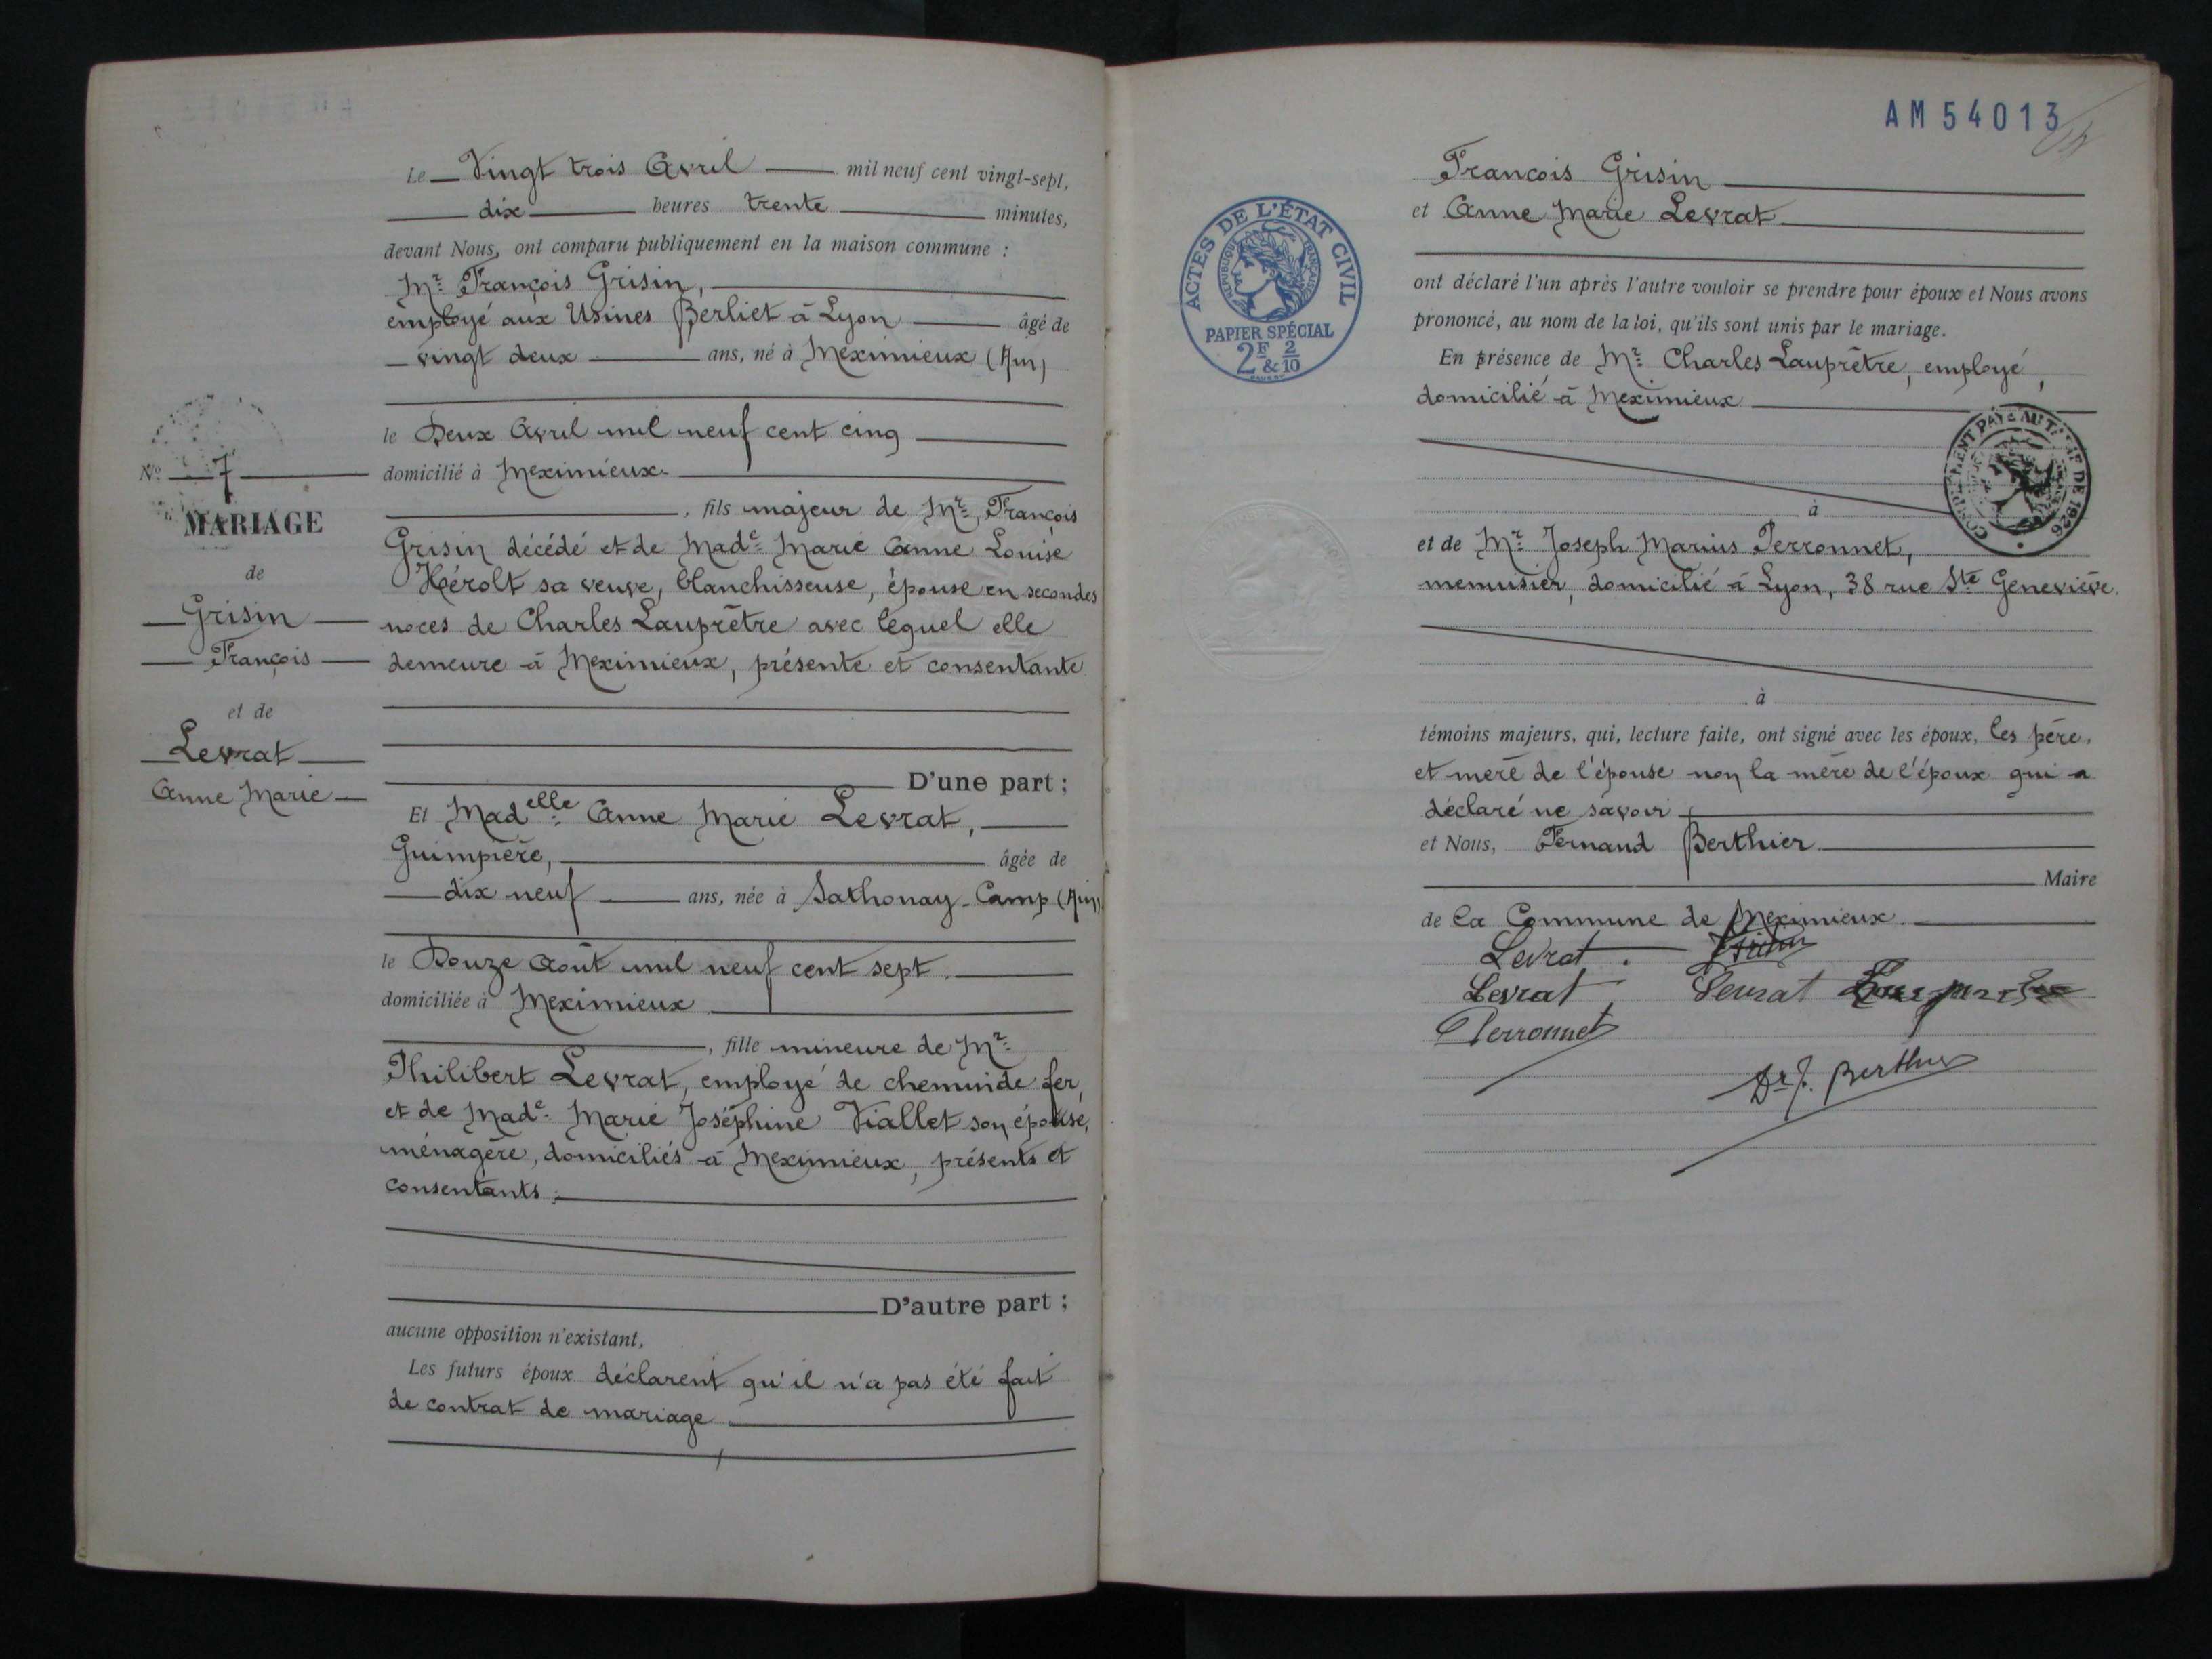 Le Vingt trois Avril mil neuf cent vingt-sept,
dix heures trente minutes,
devant Nous, ont comparu publiquement en la maison commune :
Mr. François Grisin,
employé aux Usines Berliet à Lyon âgé de
vingt deux ans, né à Meximieux (Ain)
le Deux Avril mil neuf cent cinq
domicilié à Meximieux
, fils majeur de Mr. François
Grisin décédé et de Made. Marie Anne Louise
Hérolt sa veuve, blanchisseuse, épouse en secondes
noces de Charles Lauprêtre avec lequel elle
demeure à Meximieux, présente et consentante
D'une part ;
Et Madelle. Anne Marie Levrat,
Guimpière, âgée de
dix neuf ans, née à Sathonay-Camp (Ain)
le Douze Août mil neuf cent sept.
domiciliée à Meximieux
, fille mineure de Mr.
Philibert Levrat, employé de chemin de fer,
et de Made. Marie Joséphine Viallet son épouse,
ménagère, domiciliés à Meximieux, présents et
consentants.
D'autre part ;
aucune opposition n'existant,
Les futurs époux déclarent qu'il n'a pas été fait
de contrat de mariage
No 7
MARIAGE
de
Grisin
François
et de
Levrat
Anne Marie
AM 54013
ACTES DE L'ÉTAT CIVIL
RÉPUBLIQUE FRANÇAISE
PAPIER SPÉCIAL
2F & 2/10
François Grisin
et Anne Marie Levrat
ont déclaré l'un après l'autre vouloir se prendre pour époux et Nous avons
prononcé, au nom de la loi, qu'ils sont unis par le mariage.
En présence de Mr. Charles Lauprêtre, employé,
domicilié à Meximieux
COMPLÉMENT PAYÉ AU TARIF DE 1926
à
et de Mr. Joseph Marius Perronnet,
menuisier, domicilié à Lyon, 38 rue Ste Geneviève.
à
témoins majeurs, qui, lecture faite, ont signé avec les époux, les père,
et mère de l'épouse non la mère de l'époux qui a
déclaré ne savoir
et Nous, Fernand Berthier
Maire
de la Commune de Meximieux
Levrat. Grisin
Levrat Levrat Lauprêtre
Perronnet
Dr F. Berthier